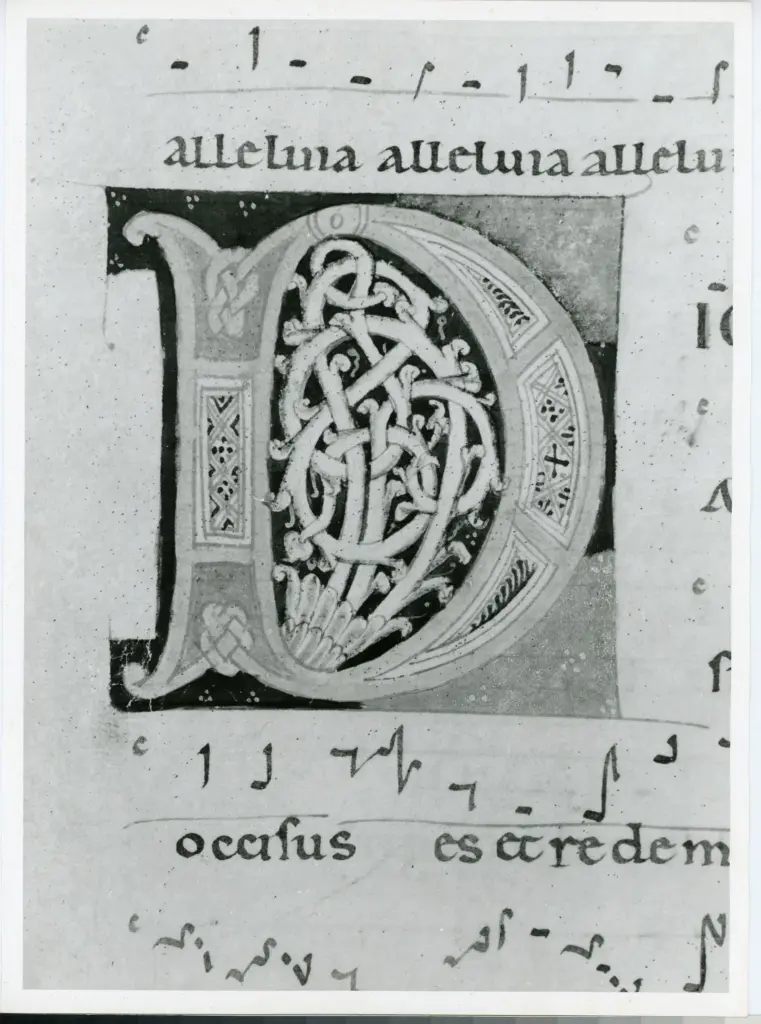 c
alleluia alleluia allelu
D
c
c
c
c
occiſus es et redem
c